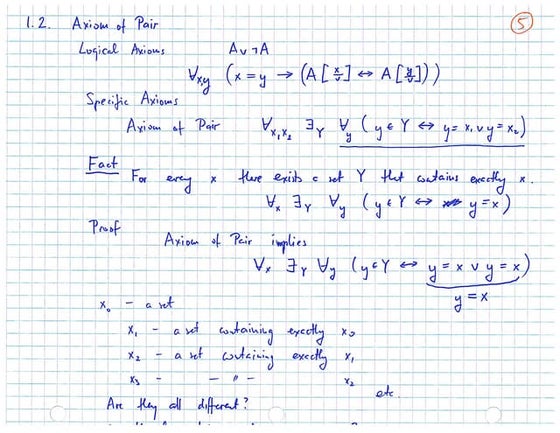 1.2. Axiom of Pair
5
Logical Axioms A ∨ ¬A
∀x,y (x = y → (A[x/v] ↔ A[y/v]))
Specific Axioms
Axiom of Pair ∀x₁,x₂ ∃Y ∀y (y ∈ Y ↔ y = x₁ ∨ y = x₂)
Fact For every x there exists a set Y that contains exactly x.
∀x ∃Y ∀y (y ∈ Y ↔ y = x)
Proof
Axiom of Pair implies
∀x ∃Y ∀y (y ∈ Y ↔ y = x ∨ y = x)
y = x
x₀ – a set
x₁ – a set containing exactly x₀
x₂ – a set containing exactly x₁
x₃ – – " – x₂
etc.
Are they all different?